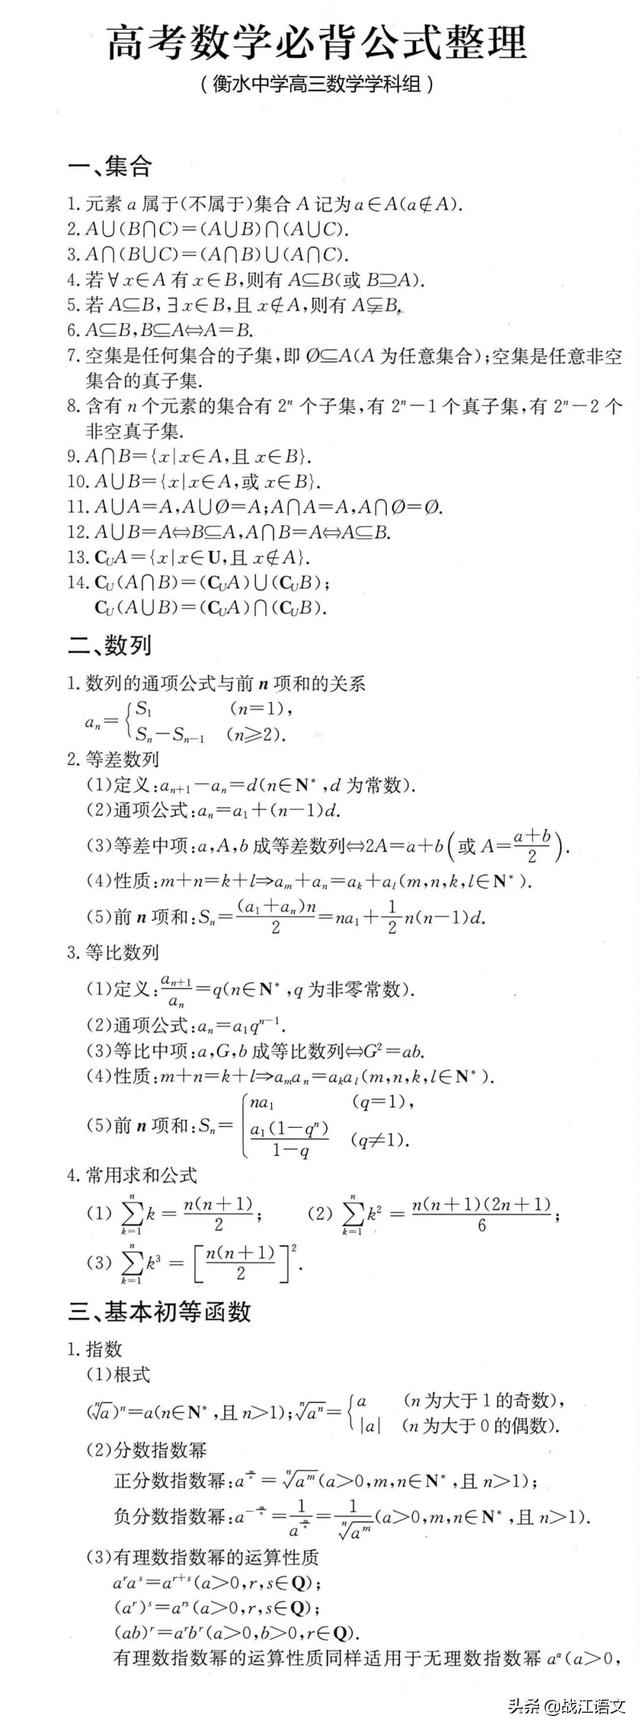 高考数学必背公式整理
(衡水中学高三数学学科组)
一、集合
1.元素 a 属于(不属于)集合 A 记为 a∈A(a∉A).
2.A∪(B∩C)=(A∪B)∩(A∪C).
3.A∩(B∪C)=(A∩B)∪(A∩C).
4.若∀x∈A 有 x∈B,则有 A⊆B(或 B⊇A).
5.若 A⊆B,∃x∈B,且 x∉A,则有 A⫋B.
6.A⊆B,B⊆A⇔A=B.
7.空集是任何集合的子集,即 ∅⊆A(A 为任意集合);空集是任意非空
集合的真子集.
8.含有 n 个元素的集合有 2ⁿ 个子集,有 2ⁿ-1 个真子集,有 2ⁿ-2 个
非空真子集.
9.A∩B={x|x∈A,且 x∈B}.
10.A∪B={x|x∈A,或 x∈B}.
11.A∪A=A,A∪∅=A;A∩A=A,A∩∅=∅.
12.A∪B=A⇔B⊆A,A∩B=A⇔A⊆B.
13.∁_U A={x|x∈U,且 x∉A}.
14.∁_U(A∩B)=(∁_U A)∪(∁_U B);
∁_U(A∪B)=(∁_U A)∩(∁_U B).
二、数列
1.数列的通项公式与前 n 项和的关系
a_n={S_1 (n=1),
S_n-S_{n-1} (n≥2).
2.等差数列
(1)定义:a_{n+1}-a_n=d(n∈N*,d 为常数).
(2)通项公式:a_n=a_1+(n-1)d.
(3)等差中项:a,A,b 成等差数列⇔2A=a+b(或 A=(a+b)/2).
(4)性质:m+n=k+l⇒a_m+a_n=a_k+a_l(m,n,k,l∈N*).
(5)前 n 项和:S_n=(a_1+a_n)n/2=na_1+1/2n(n-1)d.
3.等比数列
(1)定义:a_{n+1}/a_n=q(n∈N*,q 为非零常数).
(2)通项公式:a_n=a_1q^{n-1}.
(3)等比中项:a,G,b 成等比数列⇔G²=ab.
(4)性质:m+n=k+l⇒a_ma_n=a_ka_l(m,n,k,l∈N*).
(5)前 n 项和:S_n={na_1 (q=1),
a_1(1-qⁿ)/(1-q) (q≠1).
4.常用求和公式
(1) ∑_{k=1}^{n} k = n(n+1)/2; (2) ∑_{k=1}^{n} k² = n(n+1)(2n+1)/6;
(3) ∑_{k=1}^{n} k³ = [n(n+1)/2]².
三、基本初等函数
1.指数
(1)根式
(ⁿ√a)ⁿ=a(n∈N*,且 n>1);ⁿ√aⁿ={a (n 为大于 1 的奇数),
|a| (n 为大于 0 的偶数).
(2)分数指数幂
正分数指数幂:a^{m/n}=ⁿ√a^m(a>0,m,n∈N*,且 n>1);
负分数指数幂:a^{-m/n}=1/a^{m/n}=1/ⁿ√a^m(a>0,m,n∈N*,且 n>1).
(3)有理数指数幂的运算性质
a^ra^s=a^{r+s}(a>0,r,s∈Q);
(a^r)^s=a^{rs}(a>0,r,s∈Q);
(ab)^r=a^rb^r(a>0,b>0,r∈Q).
有理数指数幂的运算性质同样适用于无理数指数幂 a^α(a>0,
头条 @战江语文